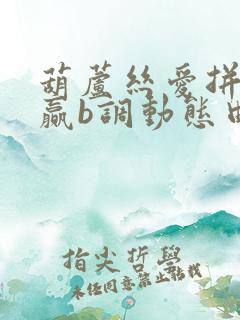 葫蘆絲愛拼
贏b調動態曲
指尖哲學
未經同意禁止轉載